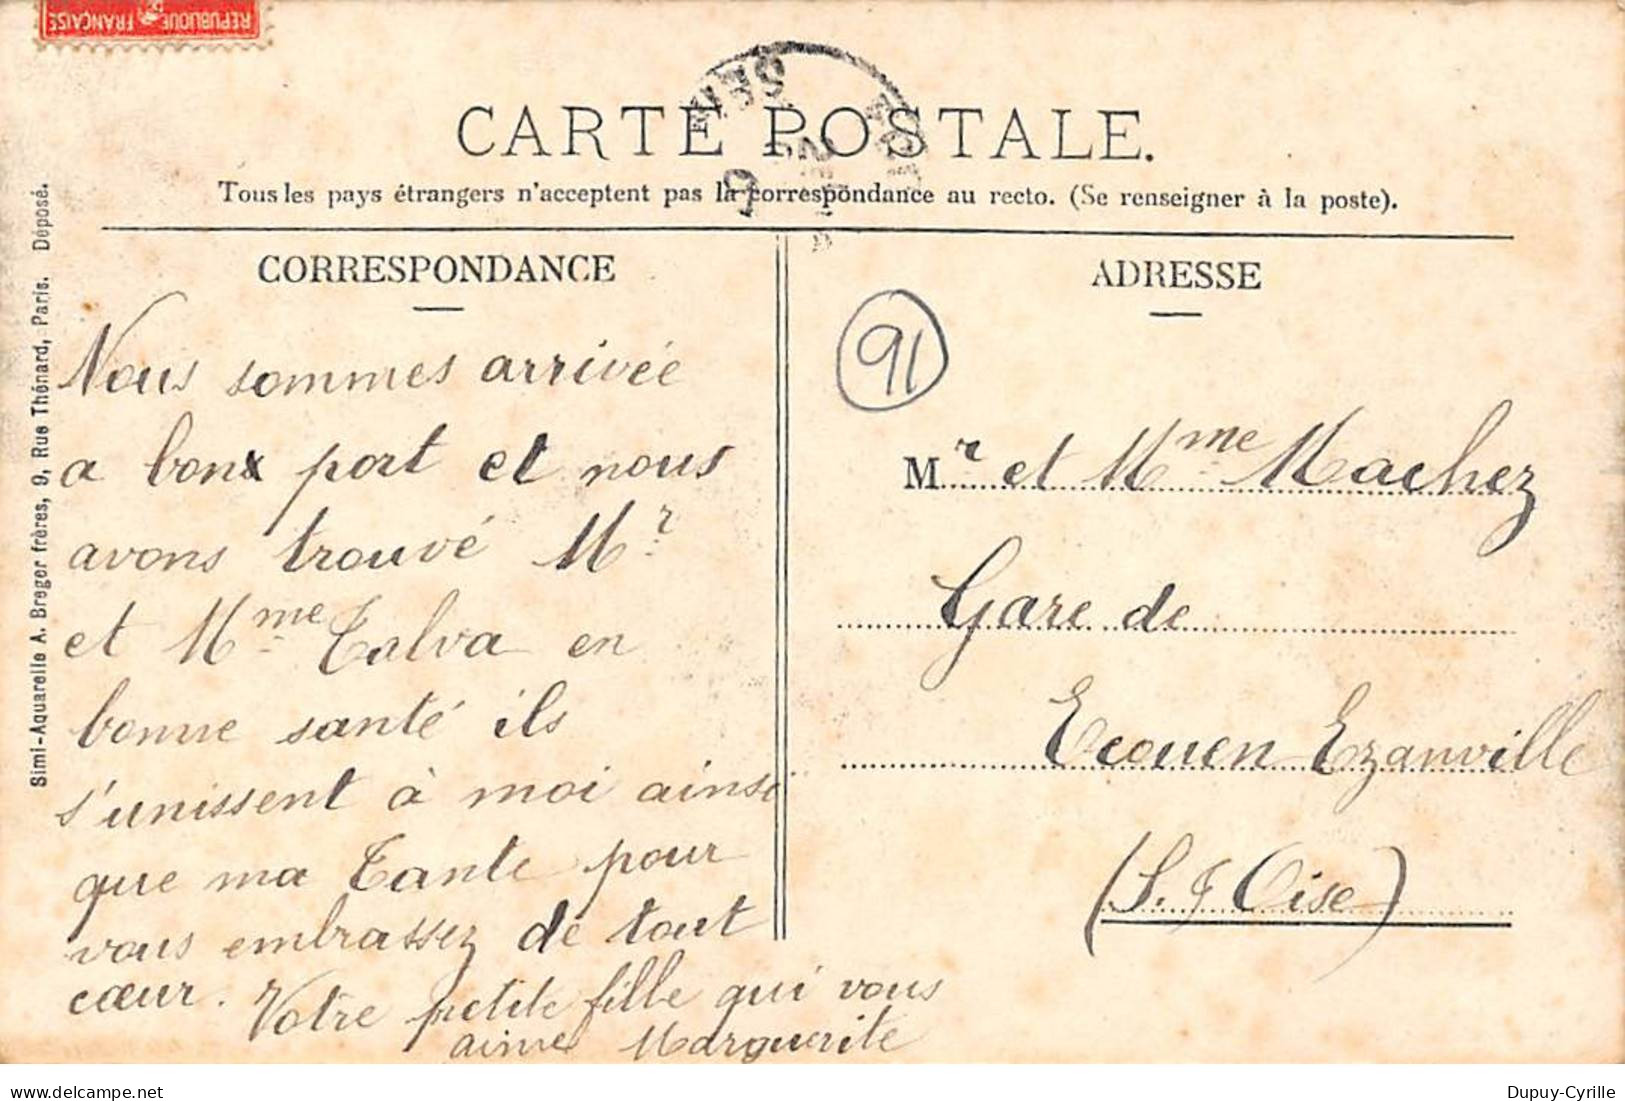 REPUBLIQUE FRANÇAISE
CARTE POSTALE.
Tous les pays étrangers n'acceptent pas la correspondance au recto. (Se renseigner à la poste).
Simi-Aquarelle A. Breger frères, 9, Rue Thénard, Paris. Déposé.
CORRESPONDANCE
Nous sommes arrivée
a bonx port et nous
avons trouvé Mr
et Mme Talva en
bonne santé ils
s'unissent à moi ainsi
que ma Tante pour
vous embrassez de tout
cœur. Votre petite fille qui vous
aime Marguerite
ADRESSE
91
Mr et Mme Machez
Gare de
Ecouen-Ezanville
(S. & Oise)
delcampe.net
Dupuy-Cyrille